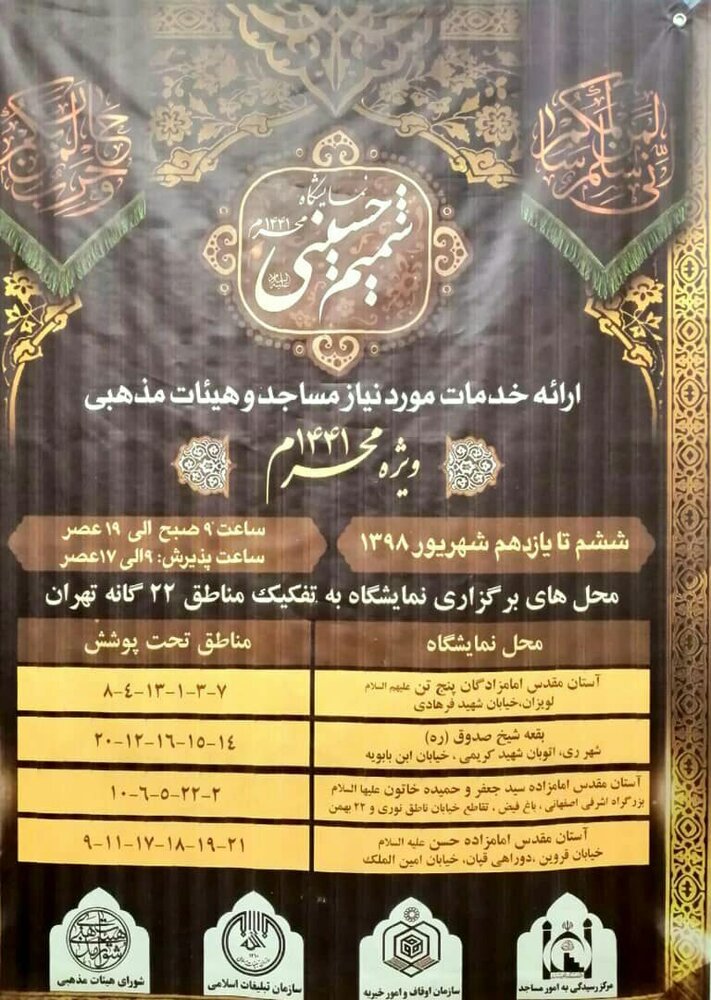 إنی سلم لمن سالمکم
و حرب لمن حاربکم
نمایشگاه
شمیم حسینی
علیه السلام
محرم ۱۴۴۱
ارائه خدمات مورد نیاز مساجد و هیئات مذهبی
ویژه محرم ۱۴۴۱
ششم تا یازدهم شهریور ۱۳۹۸
ساعت ۹ صبح الی ۱۹ عصر
ساعت پذیرش: ۹ الی ۱۷ عصر
محل های برگزاری نمایشگاه به تفکیک مناطق ۲۲ گانه تهران
محل نمایشگاه
مناطق تحت پوشش
آستان مقدس امامزادگان پنج تن علیهم السلام
لویزان، خیابان شهید فرهادی
۷-۳-۱-۱۳-۴-۸
بقعه شیخ صدوق (ره)
شهر ری، اتوبان شهید کریمی ، خیابان ابن بابویه
۱۴-۱۵-۱۶-۱۲-۲۰
آستان مقدس امامزاده سید جعفر و حمیده خاتون علیها السلام
بزرگراه اشرفی اصفهانی ، باغ فیض ، تقاطع خیابان ناطق نوری و ۲۲ بهمن
۲-۲۲-۵-۶-۱۰
آستان مقدس امامزاده حسن علیه السلام
خیابان قزوین، دوراهی قپان، خیابان امین الملک
۲۱-۱۹-۱۸-۱۷-۱۱-۹
مرکز رسیدگی به امور مساجد
سازمان اوقاف و امور خیریه
سازمان تبلیغات اسلامی
شورای هیئات مذهبی